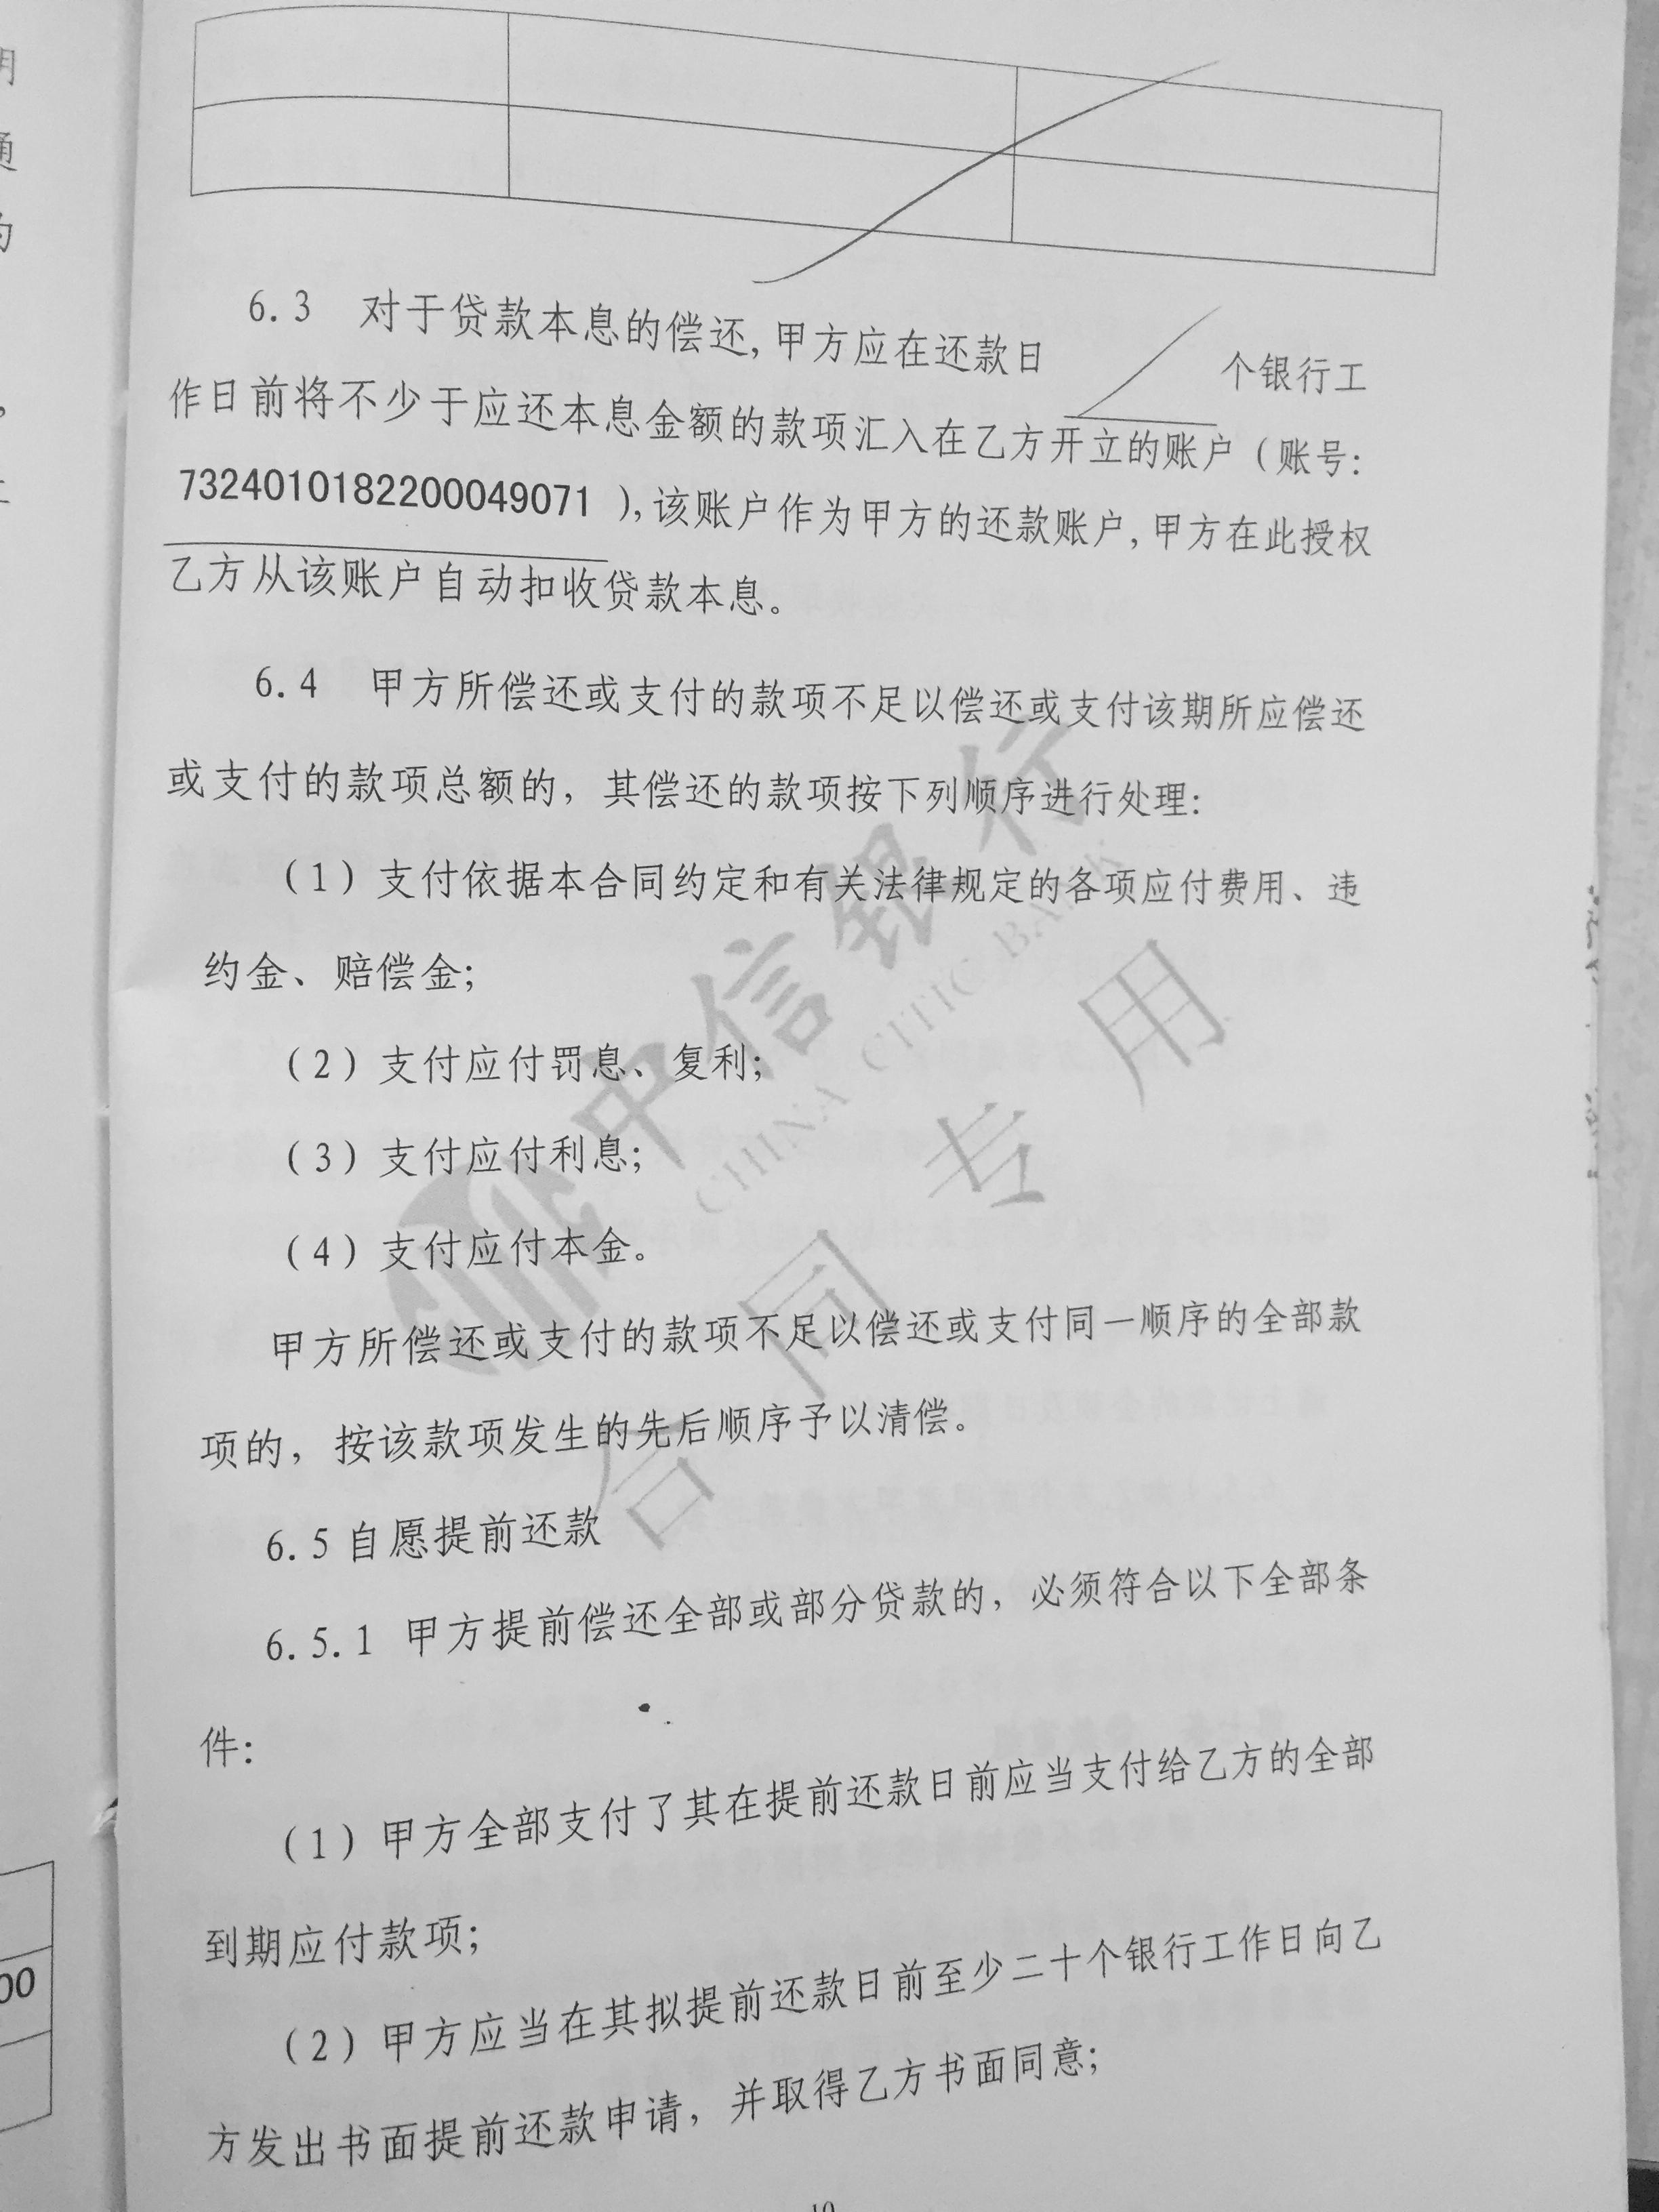 6.3 对于贷款本息的偿还,甲方应在还款日 个银行工
作日前将不少于应还本息金额的款项汇入在乙方开立的账户(账号:
7324010182200049071 ),该账户作为甲方的还款账户,甲方在此授权
乙方从该账户自动扣收贷款本息。
6.4 甲方所偿还或支付的款项不足以偿还或支付该期所应偿还
或支付的款项总额的,其偿还的款项按下列顺序进行处理:
(1)支付依据本合同约定和有关法律规定的各项应付费用、违
约金、赔偿金;
(2)支付应付罚息、复利;
(3)支付应付利息;
(4)支付应付本金。
甲方所偿还或支付的款项不足以偿还或支付同一顺序的全部款
项的,按该款项发生的先后顺序予以清偿。
6.5自愿提前还款
6.5.1 甲方提前偿还全部或部分贷款的,必须符合以下全部条
件:
(1)甲方全部支付了其在提前还款日前应当支付给乙方的全部
到期应付款项;
(2)甲方应当在其拟提前还款日前至少二十个银行工作日向乙
方发出书面提前还款申请,并取得乙方书面同意;
中信银行
CHINA CITIC BANK
合同专用
明
通
的
00
10